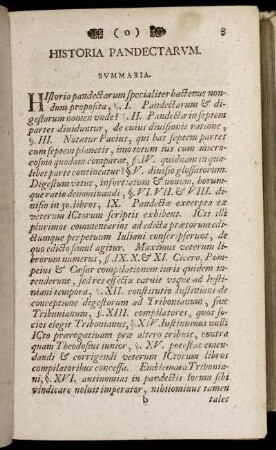 ( 0 ) 8
HISTORIA PANDECTARVM.
SVMMARIA.
HIstoria pandectarum specialiter hactenus non-
dum proposita, §. I. Pandectarum & di-
gestorum nomen unde? §. II. Pandectæ in septem
partes diuiduntur, de cuius diuisionis ratione,
§. III. Notatur Pacius, qui has septem partes
cum septem planetis, imo totum ius cum micro-
cosmo quodam comparat, §. IV. quidnam in qua-
libet parte contineatur? §. V. diuisio glossatorum.
Digestum vetus, infortiatum & nouum, horum-
que ratio denominandi, § VI. VII. & VIII. di-
uisio in 50. libros, IX. Pandectæ excerptæ ex
veterum ICtorum scriptis exhibent. ICti illi
plurimos commentarios ad edicta prætorum edi-
ctumque perpetuum Iuliani conscripserunt, de
quo edicto simul agitur. Maximus veterum li-
brorum numerus, §. IX. X. & XI. Cicero, Pom-
peius & Cæsar compilationem iuris quidem in-
tenderunt, sed res effectu caruit vsque ad Iusti-
niani tempora, §. XII. constitutio Iustiniani de
conceptione digestorum ad Tribonianum, siue
Tribunianum, §. XIII. compilatores, quos so-
cios elegit Tribonianus, §. XIV. Iustinianus nulli
ICto prærogatiuam præ altero tribuit, contra
quam Theodosius iunior, §. XV. potestas emen-
dandi & corrigendi veterum ICtorum libros
compilatoribus concessa. Emblemata Tribonia-
ni, §. XVI. antinomias in pandectis locum sibi
vindicare noluit imperator, nihilominus tamen
b tales